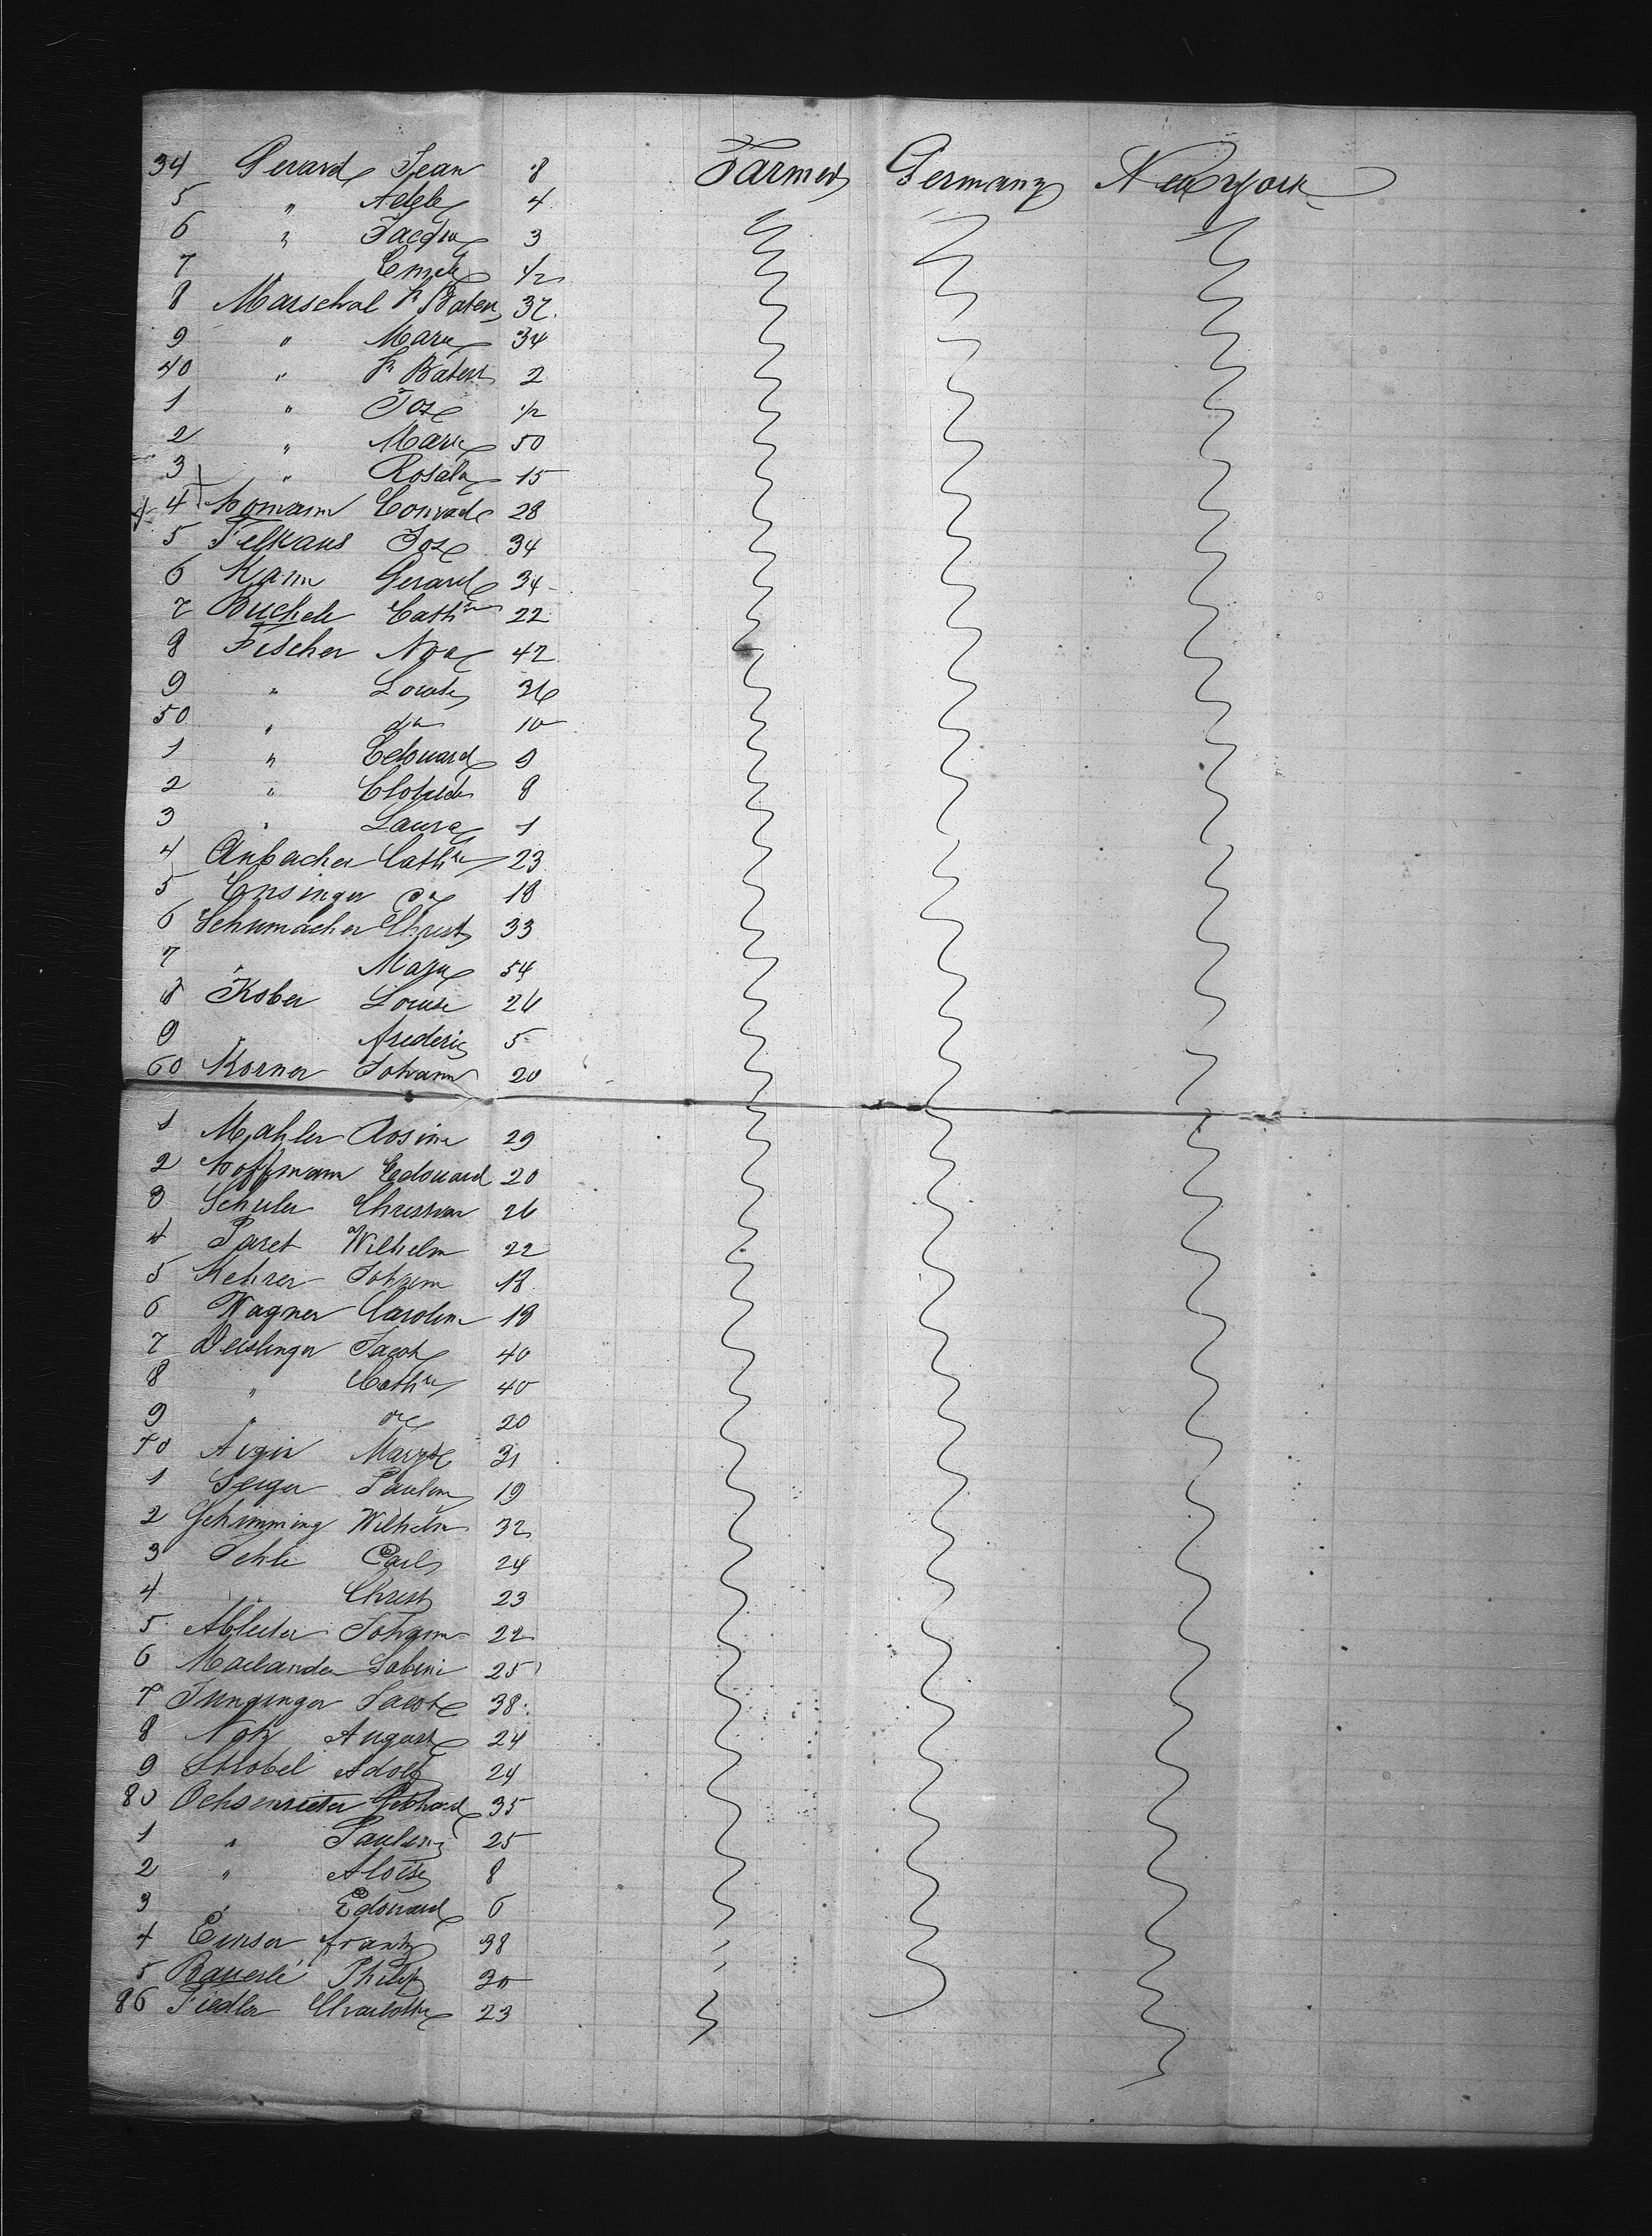 34 Gerard Jean 8 Farmer Germany New York
5 " Adele 4
6 " Jacque 3
7 Emile 1/2
8 Marschal Jn Batest 37
9 " Marie 34
40 " Jn Batest 2
1 " Jos 1/2
2 " Marie 50
3 " Rosalie 15
4 Homann Conrad 28
5 Felkaus Jos 34
6 Kann Gerard 34
7 Buchele Cathne 22
8 Fischer 42
9 " Louise 36
50 " do 10
1 " Edouard 9
2 " Clotilde 8
3 " Laura 1
4 Anbacher Cathne 23
5 Ensinger do 18
6 Schumacher Christ 33
7 " Marie 54
8 Kober Louise 26
9 " frederic 5
60 Korner Johann 20
1 Mahler Rosine 29
2 Hoffmann Edouard 20
3 Schuler Christian 26
4 Paret Wilhelm 22
5 Kehrer Johann 18
6 Wagner Carolin 19
7 Deislinger Jacob 40
8 " Cathne 40
9 " do 20
70 Aigin Margte 31
1 Geiger Paulin 19
2 Schimming Wilhelm 32
3 Sehli Carl 24
4 " Christ 23
5 Ableiter Johann 22
6 Mailander Sabine 25
7 Junginger Jacob 38
8 Notz August 24
9 Strobel Adolf 24
80 Ochsenreiter Gebhard 35
1 " Pauline 25
2 " Aloise 8
3 " Edouard 6
4 Einser frantz 38
5 Bauerle Philip 30
86 Fiedler Charlotte 23